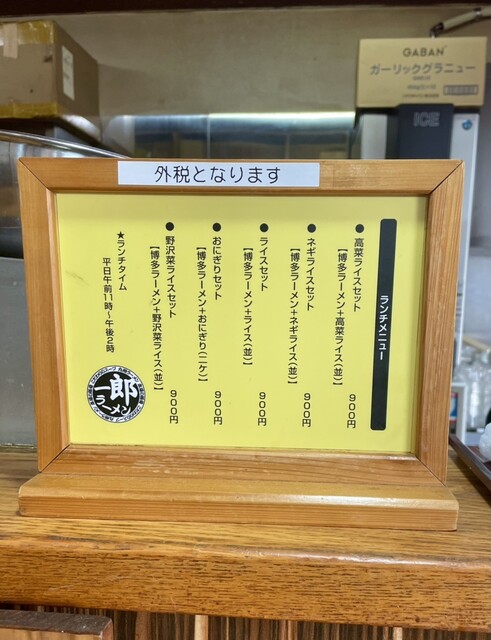 GABAN
ガーリックグラニュー
ICE
外税となります
ランチメニュー
●高菜ライスセット
【博多ラーメン+高菜ライス(並)】
900円
●ネギライスセット
【博多ラーメン+ネギライス(並)】
900円
●ライスセット
【博多ラーメン+ライス(並)】
900円
●おにぎりセット
【博多ラーメン+おにぎり(二ケ)】
900円
●野沢菜ライスセット
【博多ラーメン+野沢菜ライス(並)】
900円
★ランチタイム
平日午前11時~午後2時
一郎
ラーメン